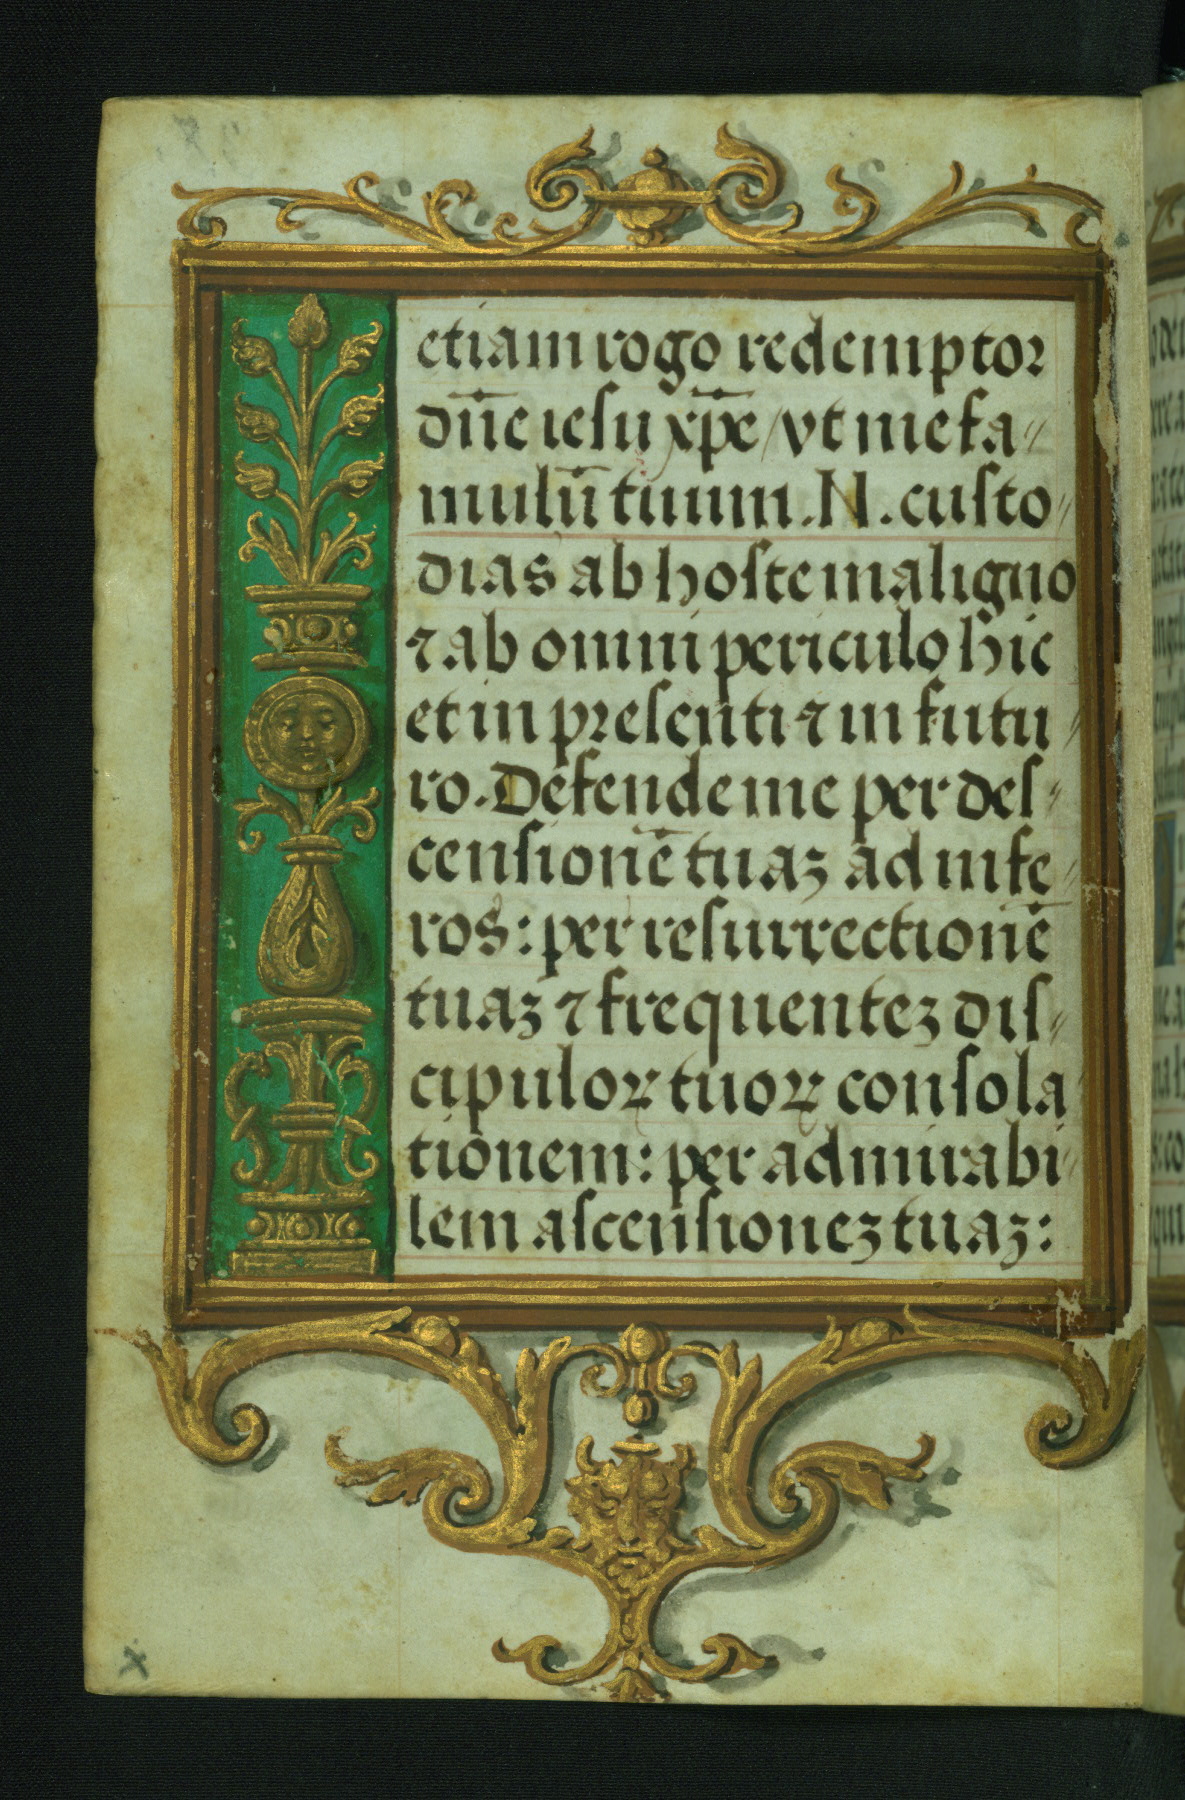 etiam rogo redemptor
dn̄e iesu xp̄e / vt me fa〃
mulū tuum .N. custo〃
dias ab hoste maligno
⁊ ab omni periculo hic
et in presenti ⁊ in futu〃
ro. Defende me per des〃
censionē tuaꝫ ad infe〃
ros: per resurrectionē
tuaꝫ ⁊ frequenteꝫ dis〃
cipuloꝝ tuoꝝ consola
tionem: per admirabi〃
lem ascensioneꝫ tuaꝫ: